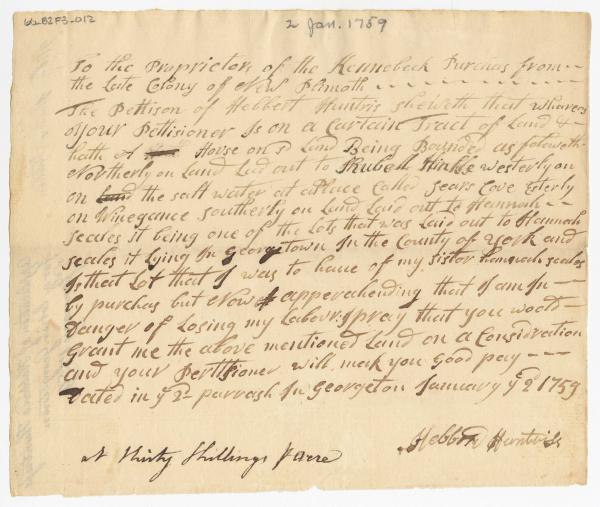 62-B2F3-012
2 Jan. 1759
To the Proprietors of the Kennebeck Purchas from
the Late Colony of New Plimoth
The Pettison of Hebbert Huntris sheweth that wharers
your Pettisioner Is on a Cartain Tract of Land &
hath A House on sd Land Being Bounded as foloweth
Northerly on Land Laid out to Rubeth Hinks westerly on
on land the salt water at a Place Called sears Cove Esterly
on Winegance southerly on Land Laid out to Hannah
scales It being one of the Lots that was Laid out to Hannah
scales it Lying In Georgetown In the County of York and
Is that Lot that I was to have of my sister hannah scales
by purchas but Now apperahending that I am In
Danger of Losing my Labour I pray that you woold
Grant me the above mentioned Land on a Considration
and your Pertisioner will mak you Good pay
Dated in ye 2d parrash In Georgeton January ye 2 1759
Hebbert Huntriss
at thirty Shillings p acre